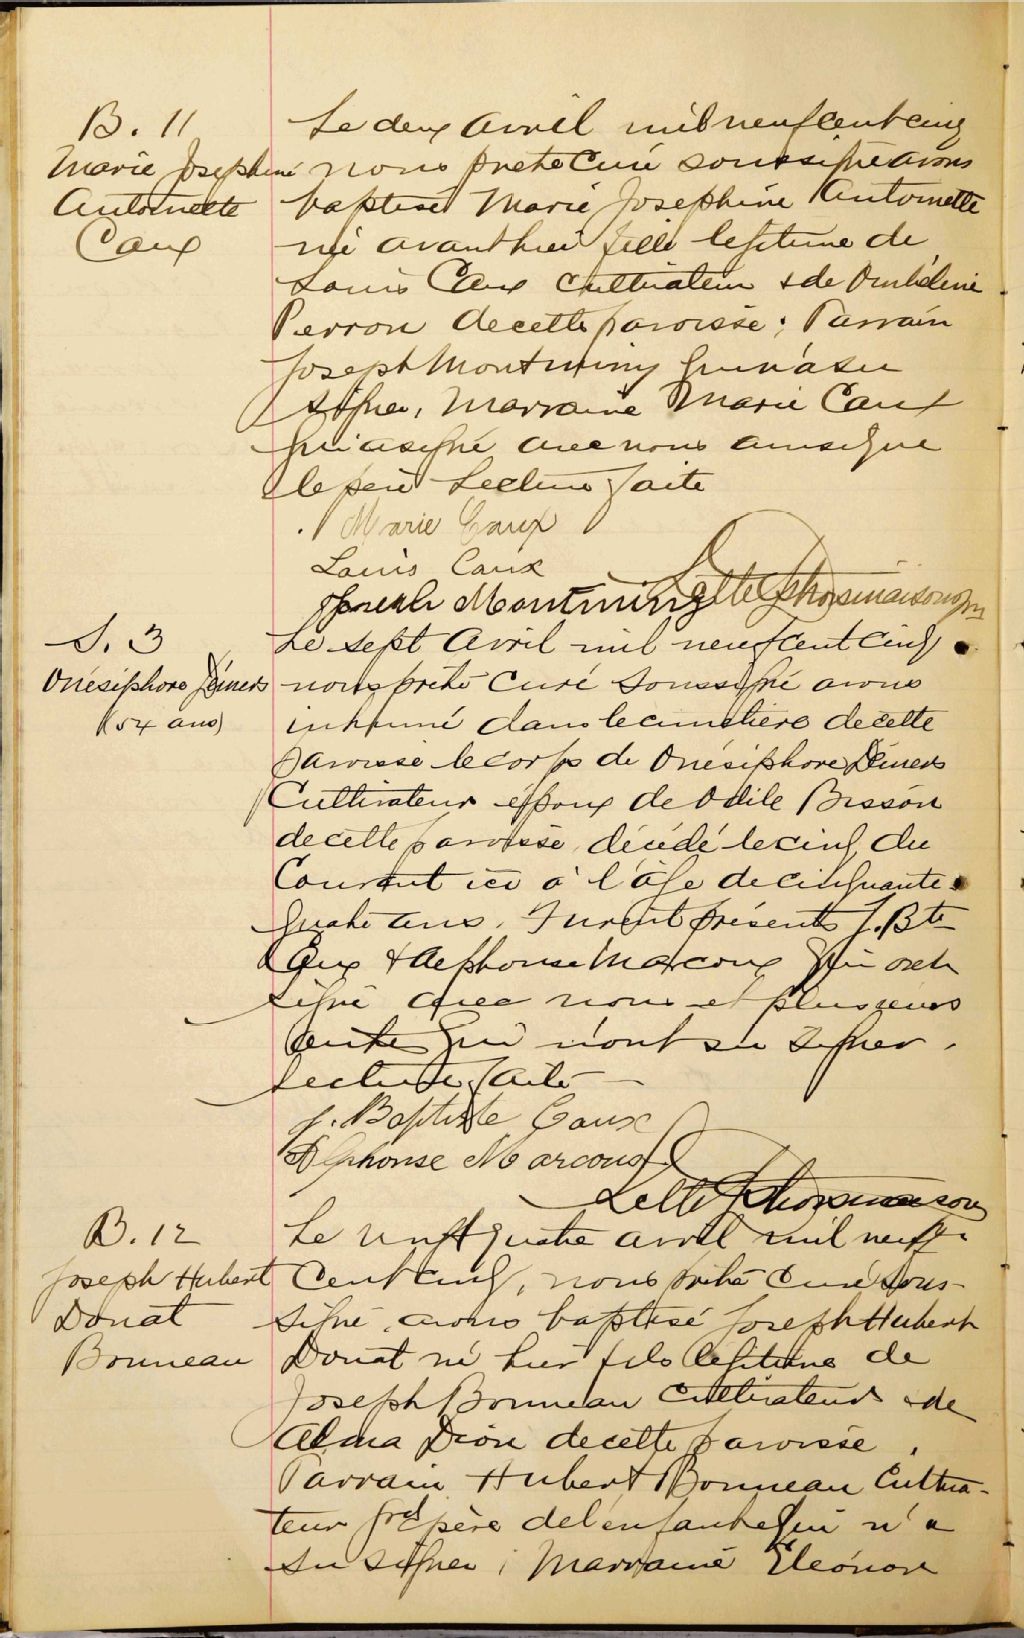 B. 11
Marie Josephine
Antoinette
Caux
Le deux Avril mil neuf cent cinq
nous prêtre Curé soussigné avons
baptisé Marie Josephine Antoinette
né avant hier fille légitime de
Louis Caux Cultivateur & de Ombéline
Perron de cette paroisse; Parrain
Joseph Montminy qui n'a su
signer, Marraine Marie Caux
qui a signé avec nous ainsi que
le père Lecture faite
Marie Caux
Louis Caux
Joseph Montminy
S. 3
Onésiphore
(54 ans)
Le sept Avril mil neuf cent cinq
nous prêtre Curé Soussigné avons
inhumé dans le cimetière de cette
paroisse le corps de Onésiphore
Cultivateur époux de Odile Bisson
de cette paroisse décédé le cinq du
Courant ici à l'âge de cinquante
quatre ans. Furent présents J. Bte
Caux & Alphonse Marcoux qui ont
signé avec nous et plusieurs
autres qui n'ont su signer.
Lecture faite
J. Baptiste Caux
Alphonse Marcoux
B. 12
Joseph Hubert
Donat
Bonneau
Le vingt quatre avril mil neuf
Cent cinq, nous prêtre Curé sous-
signé avons baptisé Joseph Hubert
Donat né hier fils légitime de
Joseph Bonneau Cultivateur & de
Alma Dion de cette paroisse,
Parrain Hubert Bonneau Cultiva-
teur grd père de l'enfant qui n'a
su signer; Marraine Eléonor